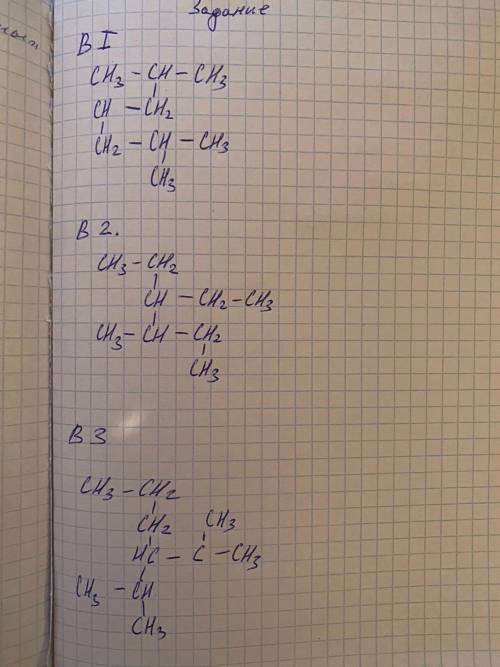 Задание
В I
CH3 - CH - CH3
CH - CH2
CH2 - CH - CH3
CH3
В 2.
CH3 - CH2
CH - CH2 - CH3
CH3 - CH - CH2
CH3
В 3
CH3 - CH2
CH2 CH3
HC - C - CH3
CH3 - CH
CH3